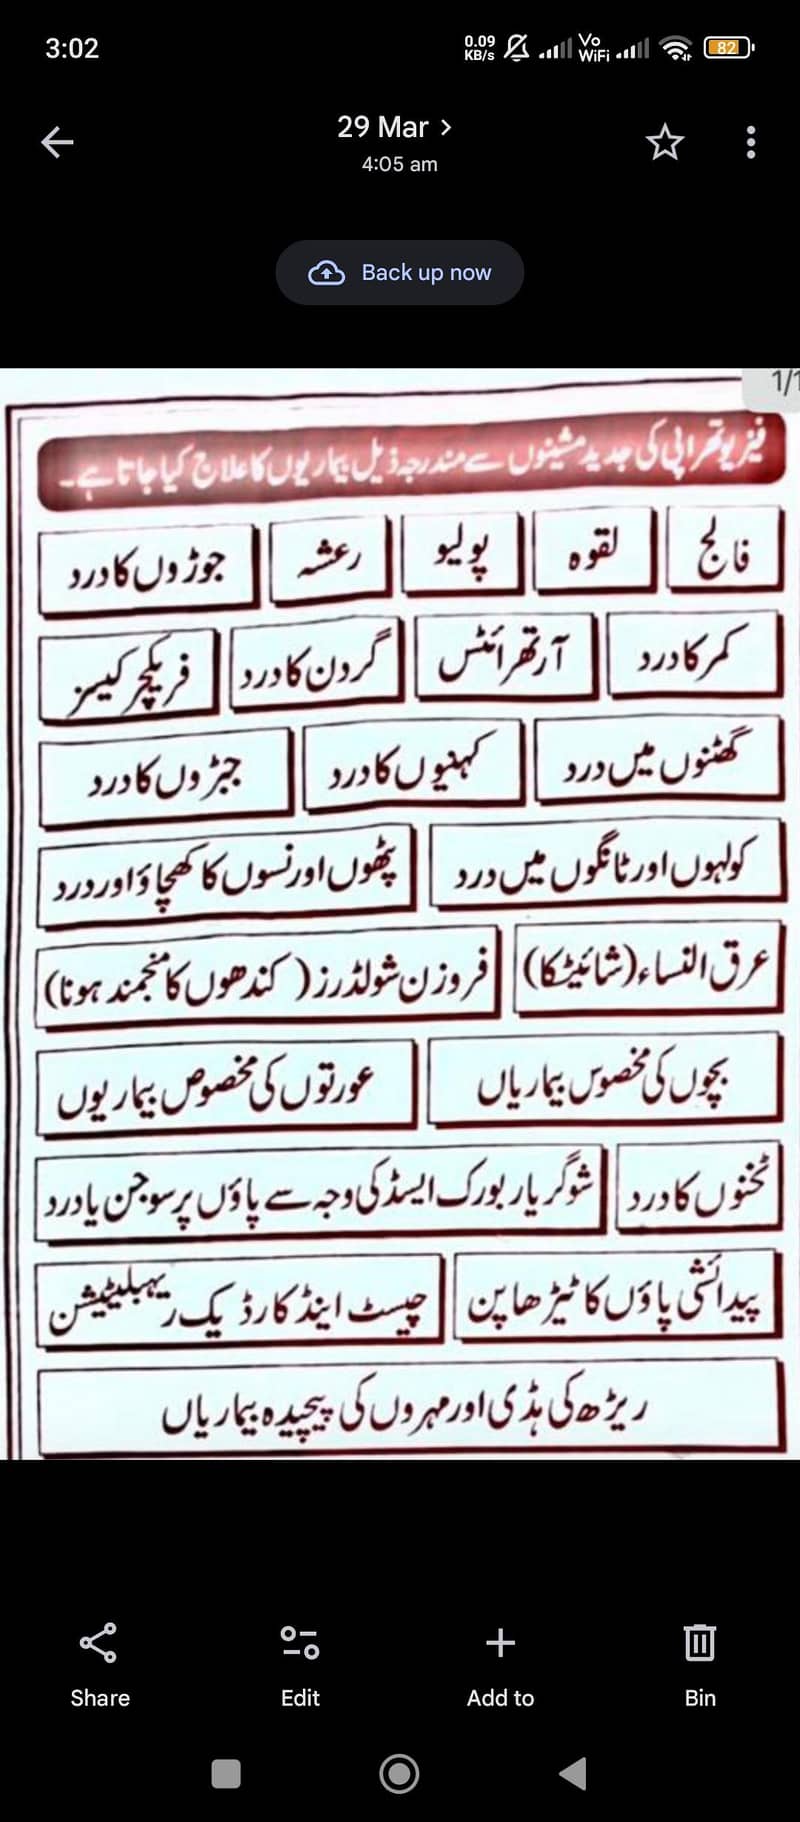 3:02
0.09 KB/s Vo WiFi 82
29 Mar >
4:05 am
Back up now
1/1
فزیوتھراپی کی جدید مشینوں سے مندرجہ ذیل بیماریوں کا علاج کیا جاتا ہے۔
فالج لقوہ پولیو رعشہ جوڑوں کا درد
کمر کا درد آرتھرائٹس گردن کا درد فریکچر کیسز
گھٹنوں میں درد کہنیوں کا درد جبڑوں کا درد
کولہوں اور ٹانگوں میں درد پٹھوں اور نسوں کا کھچاؤ اور درد
عرق النساء (شائیٹکا) فروزن شولڈرز (کندھوں کا منجمند ہونا)
بچوں کی مخصوس بیماریاں عورتوں کی مخصوص بیماریوں
ٹخنوں کا درد شوگر یا ریورک ایسڈ کی وجہ سے پاؤں پر سوجن یا درد
پیدائشی پاؤں کا ٹیڑھا پن چیسٹ اینڈ کارڈیک ریہبلیٹیشن
ریڑھ کی ہڈی اور مہروں کی پیچیدہ بیماریاں
Share Edit Add to Bin